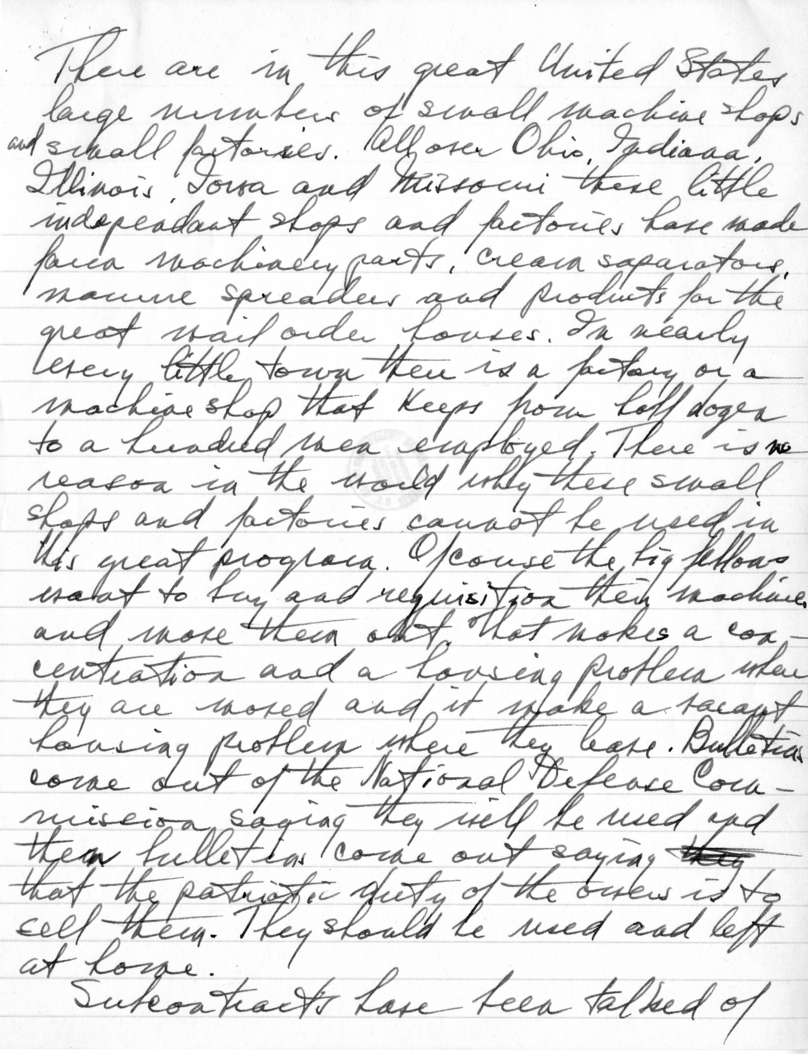 There are in this great United States
large numbers of small machine shops
and small factories. All over Ohio, Indiana,
Illinois, Iowa and Missouri these little
independant shops and factories have made
farm machinery parts, cream saparators,
manure spreaders and products for the
great mail order houses. In nearly
every little town there is a factory or a
machine shop that keeps from half dozen
to a hundred men employed. There is no
reason in the world why these small
shops and factories cannot be used in
this great program. Of course the big fellows
want to buy and requisition their machines
and move them out. That makes a con-
centration and a housing problem where
they are moved and it make a vacant
housing problem where they leave. Bulletins
come out of the National Defense Com-
mission saying they will be used and
then bulletins come out saying they
that the patriotic duty of the owners is to
sell them. They should be used and left
at home.
Subcontracts have been talked of